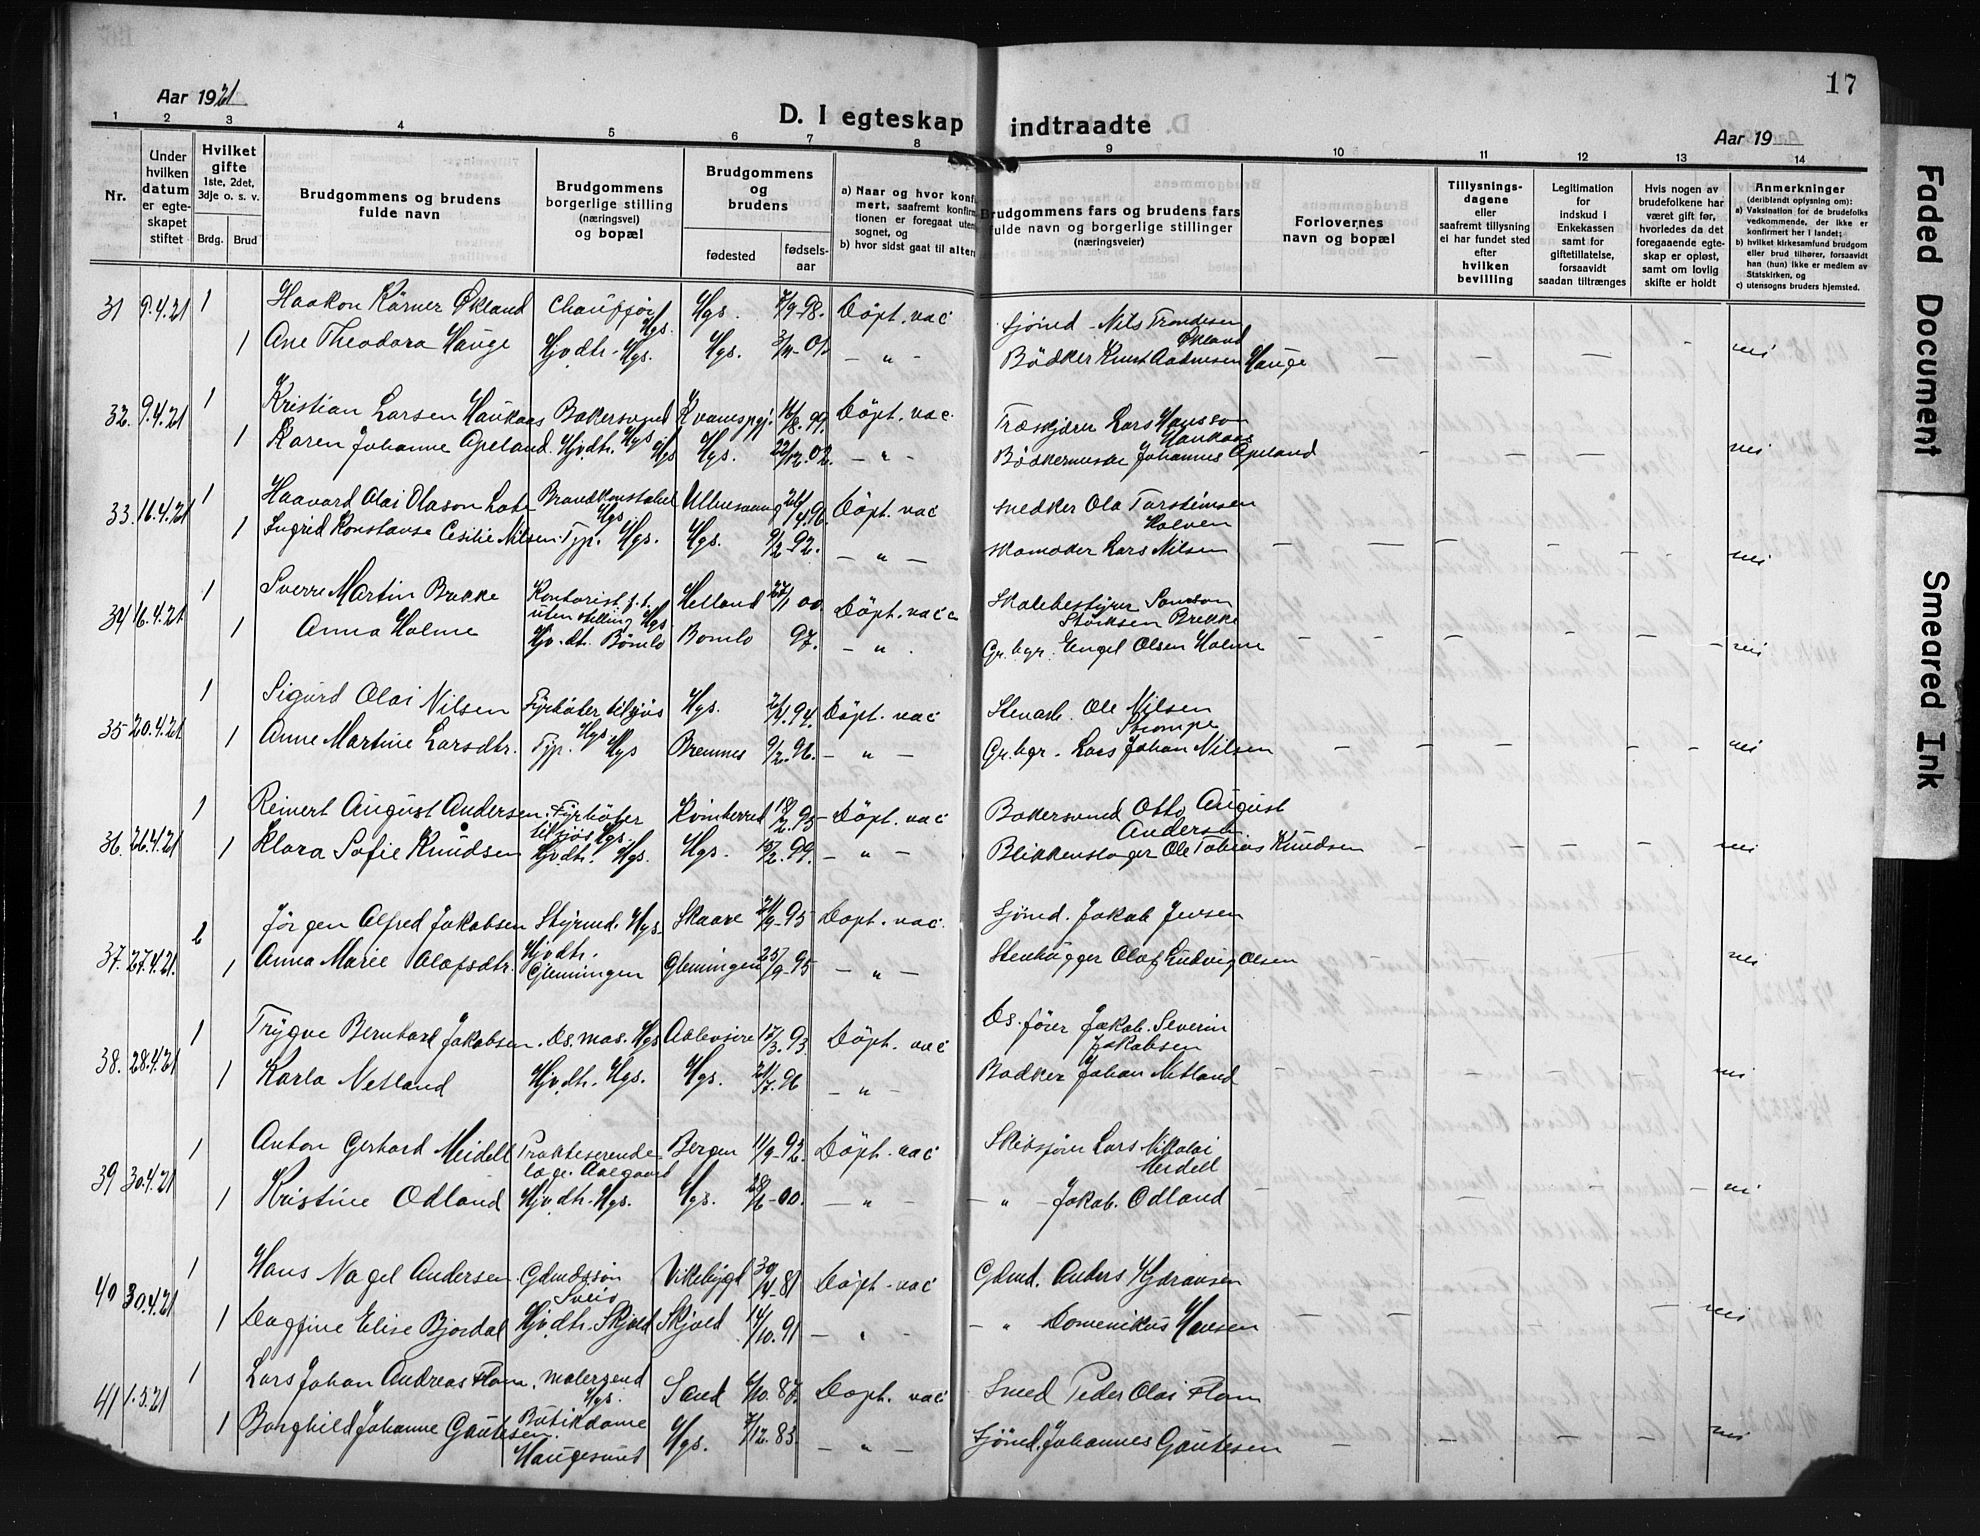 17
Aar 1921
D. I egteskap indtraadte
Aar 19
1 2 3 4 5 6 7 8 9 10 11 12 13 14
Nr.
Under hvilken datum er egteskapet stiftet
Hvilket gifte
1ste, 2det, 3dje o. s. v.
Brdg. Brud
Brudgommens og brudens fulde navn
Brudgommens borgerlige stilling (næringsvei) og bopæl
Brudgommens og brudens
fødested
fødsels-aar
a) Naar og hvor konfirmert, saafremt
b) hvor sidst gaat til alters
Brudgommens fars og brudens fars fulde navn og borgerlige stillinger (næringsveier)
Forlovernes navn og bopæl
Tillysnings-dagene eller saafremt tillysning ei har fundet sted efter hvilken bevilling
Legitimation for indskud i Enkekassen samt for giftetillatelse, forsaavidt saadan tiltrænges
Hvis nogen av brudefolkene har været gift før, hvorledes da det foregaaende egteskap er opløst, samt om lovlig skifte er holdt
Anmerkninger (deriblandt oplysning om): a) Vaksination for de brudefolks vedkommende, der ikke er konfirmert her i landet; b) hvilket kirkesamfund brudgom eller brud tilhører, forsaavidt han (hun) ikke er medlem av Statskirken, og c) utensogns bruders hjemsted.
31 9.4.21 1 Haakon Körner Økland Chauffør Hgs. Hgs. 7/9-98. Döpt. vac Sjömd - Nils Trondesen Økland
1 Ane Theodora Hauge Hjv.dtr. Hgs. Hgs. - " - Bödker Knut Aadnesen Hauge nei
32. 9.4.21 1 Kristian Larsen Haukaas Bakersvend Hgs 16/8.99. Döpt. vac. Træskjærer Lars Hansson Haukaas
1 Karen Johanne Apeland Hjv.dtr. Hgs Hgs. 22/12.02. - " - Johannes Apeland nei
33. 16.4.21 1 Haavard Olai Olason Brandkonstabel Hgs. Ullensvang Döpt. vac Snedker Ola Torsteinsen
1 Ingrid Konstanse Cesilie Nilsen Typ. Hgs. Hgs. 9/2-92. - " - Skomaker Lars Nilsen nei
34 16.4.21 1 Sverre Martin Brekke Kontorist f.t. uten stilling Hgs Helland 27/1 00. Döpt. vac Skolebestyrer Samson Störksen Brekke
1 Anna Holme Hjv.dtr. Bömlo Bomlo 97. - " - Gr.bgr. Engel Olsen Holme nei
35 20.4.21 1 Sigurd Olai Nilsen Fyrböter tilsjös Hgs Hgs. Döpt. vac Stenarb. Ole Nilsen Stompe
1 Anne Martine Larsdtr. Typ. Hgs Bremnes 9/2.96. - " - Gr.bgr. Lars Johan Nilsen nei
36. 26.4.21 1 Reinert August Andersen Fyrböter tilsjös Hgs. Kvinherred 18/2.95 Döpt. vac Bakersvend Otto August Andersen
1 Klara Sofie Knudsen Hjv.dtr. Hgs. Hgs. 15/2.99. - " - Blikkenslager Ole Tobias Knudsen nei
37. 27.4.21. 2 Jørgen Alfred Jakobsen Styrmd. Hgs. Skaare 21/9-95 Döpt. vac. Sjömd. Jakob Jensen
1 Anna Marie Olafsdtr. Hjv.dtr. Glemingen Glemingen 25/9-95 - " - Stenhugger Olaf Ludvig Olsen nei
38. 28.4.21 1 Trygve Bernhard Jakobsen Ds. mas. Hgs 17/3.93 Döpt. vac Ds. fører Jakob Severin Jakobsen
1 Karla Netland Hjv.dtr. Hgs. Hgs. 21/7.96 - " - Bødker Johan Netland nei
39 30.4.21 1 Anton Gerhard Meidell Praktiserende læge. Aalgaard Bergen 11/9-92. Döpt. vac Skibsfører Lars Nikolai Meidell
1 Kristine Odland Hjv.dtr. Hgs. Hgs. 28/6-00. - " - - " - Jakob Odland nei
40 30.4.21 1 Hans Nagel Andersen Gdmdssön Sveio Vikebygd 81 Döpt. vac Gdmd. Anders
1 Dagfine Elise Bjordal Hjv.dtr. Skjold Skjold 14/10.91 - " - - " - Domenikus Hansen nei
41 1.5.21 1 Lars Johan Andreas Flom Malersvend Hgs. Sand 6/10.87. Döpt. vac Smed Peder Olai Flom
1 Borghild Johanne Gautesen Butikdame Haugesund Hgs. 7/12.83. - " - Sjömd. Johannes Gautesen nei
Faded Document
Smeared Ink